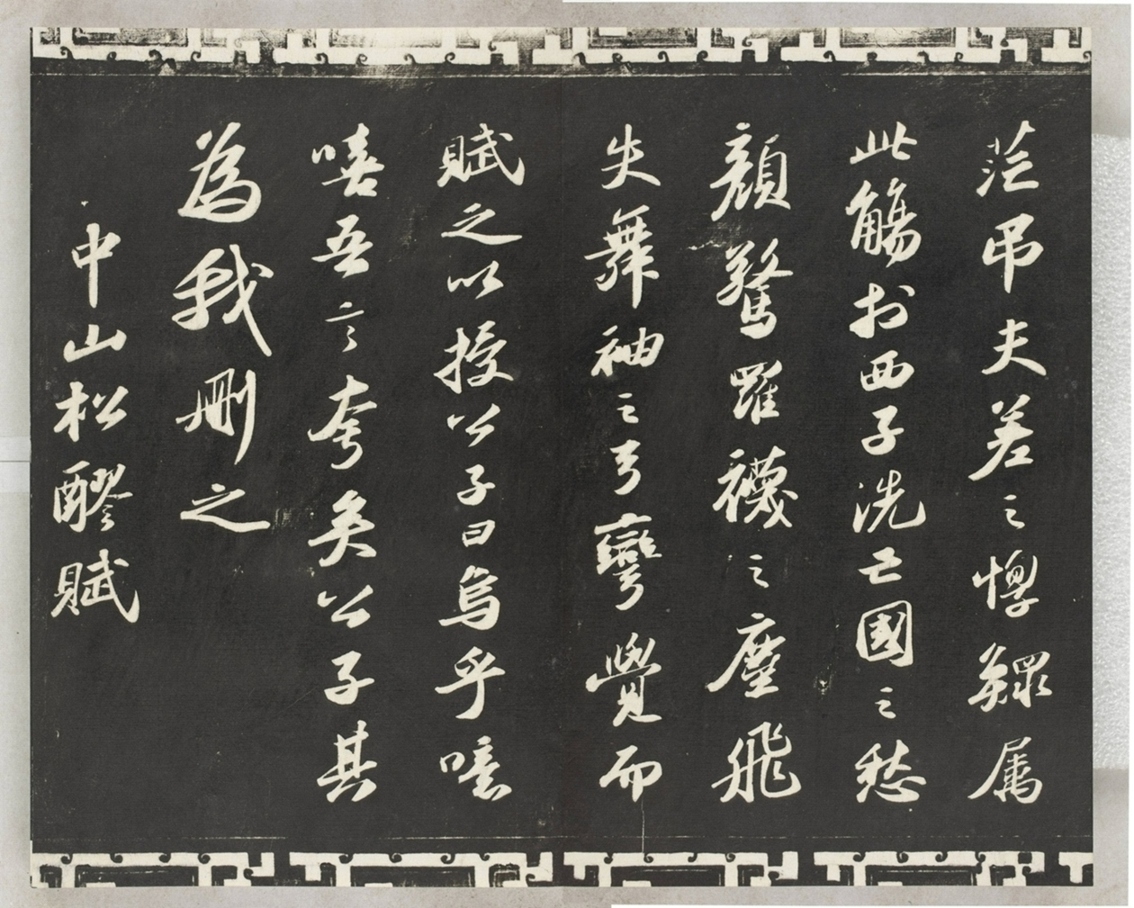 茫吊夫差之惸鰥属
此觴於西子洗亡國之愁
顏驚羅襪之塵飛
失舞袖之弓彎覺而
賦之以授公子曰烏乎噫
嘻吾言夸矣公子其
為我刪之
中山松醪賦